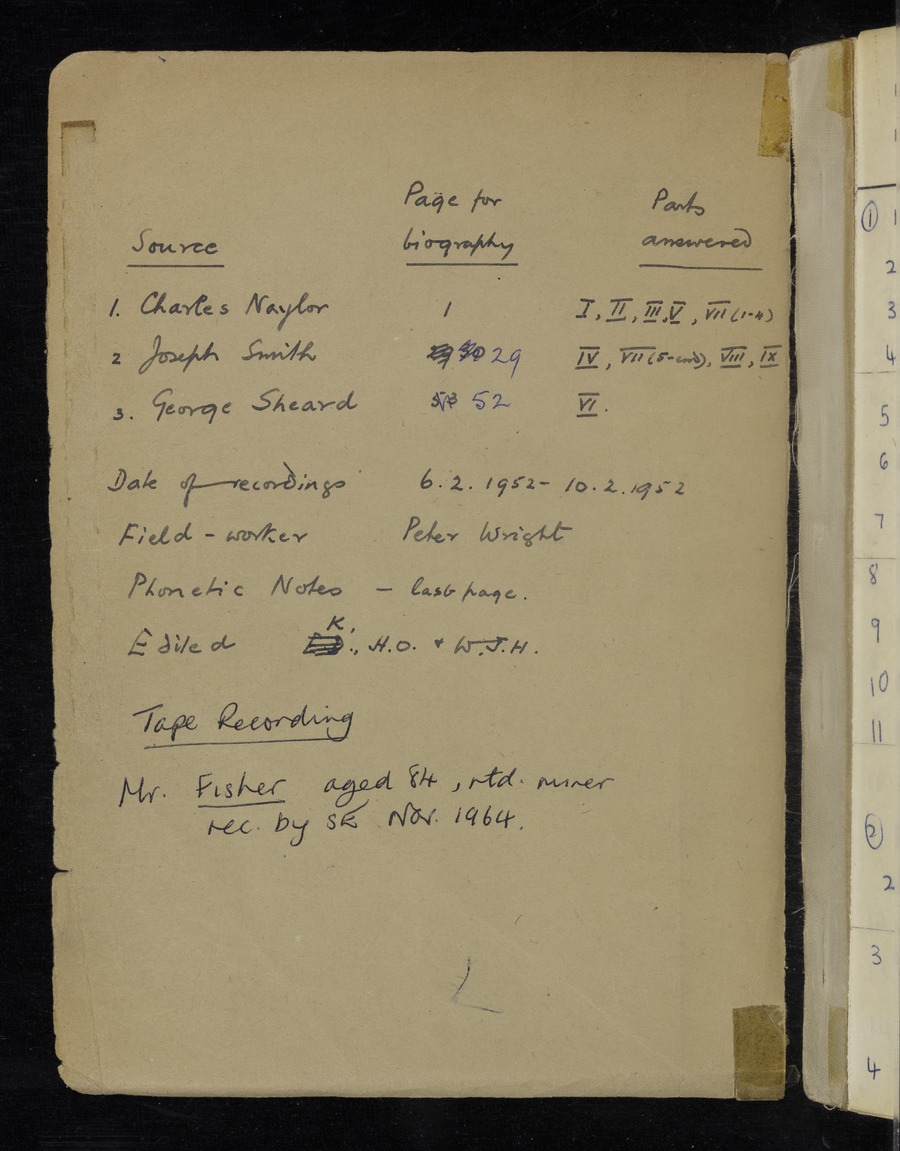 Page for Parts
Source biography answered
1. Charles Naylor 1 I, II, III, V, VII (1-4)
2 Joseph Smith 29 IV, VII (5-end), VIII, IX
3. George Sheard 52 VI.
Date of recordings 6.2.1952 - 10.2.1952
Field-worker Peter Wright
Phonetic Notes - last page.
K.
Edited , H.O. + W.J.H.
Tape Recording
Mr. Fisher aged 84, rtd. miner
rec. by SE Nov. 1964.
1
2
3
4
5
6
7
8
9
10
11
2
2
3
4